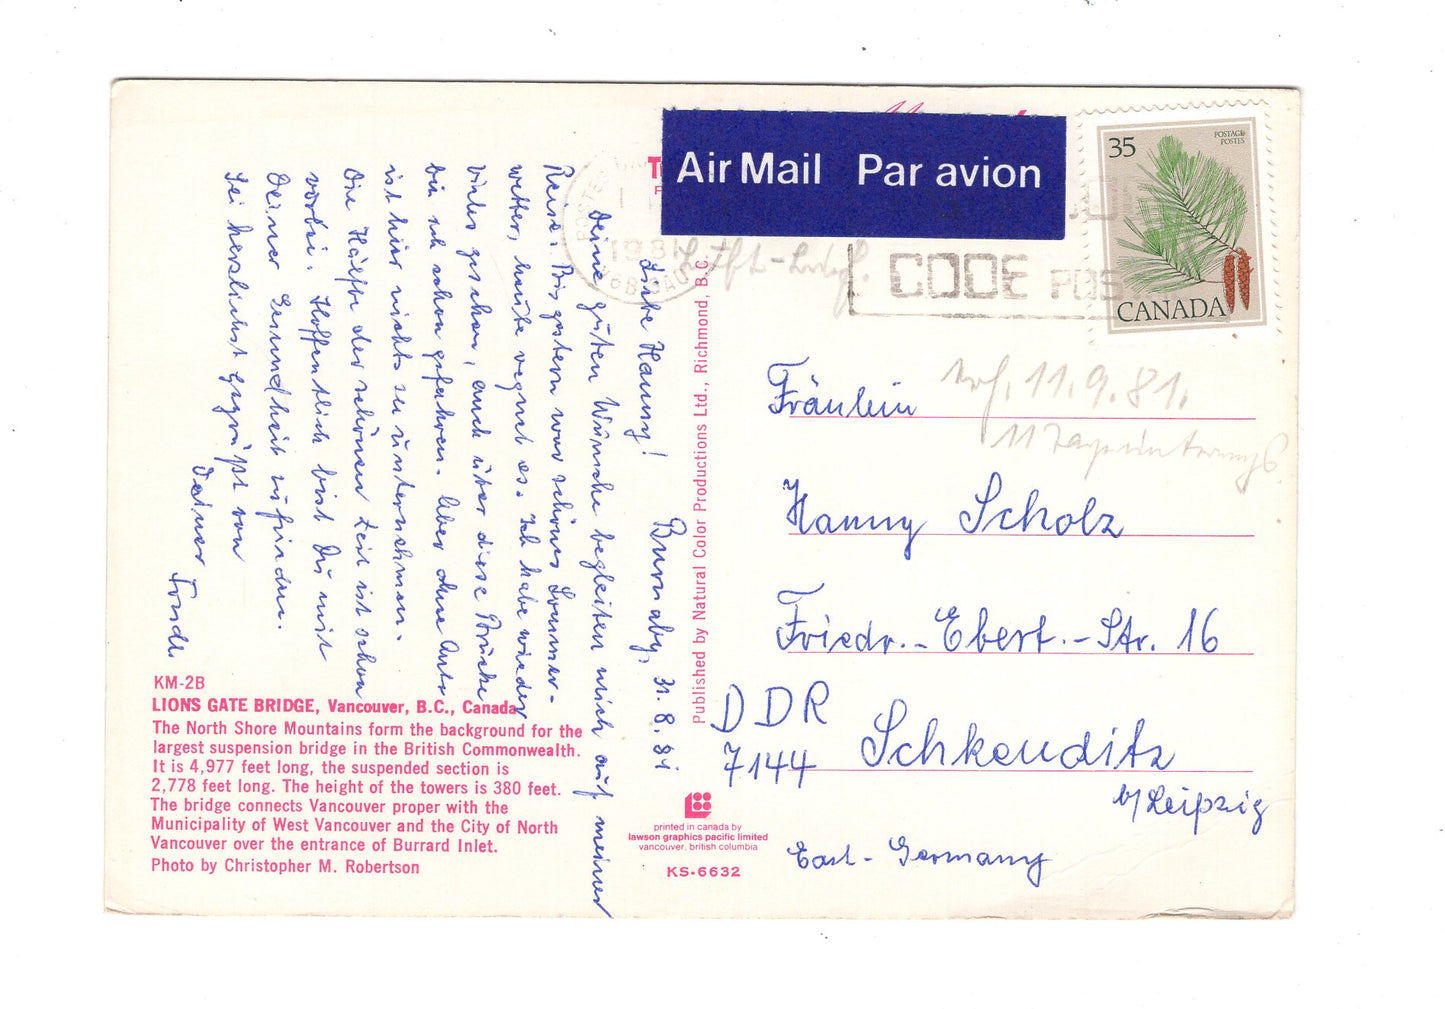 Liebe Hanny! Burnaby, 31. 8. 81
Deine guten Wünsche begleiten mich auf meiner
Reise. Bis gestern war schönes Sommer-
wetter, heute regnet es. Ich habe wieder
vieles gesehen, auch über diese Brücke
bin ich schon gefahren. Aber ohne Auto
ist hier nichts zu unternehmen.
Die Hälfte der schönen Zeit ist schon
vorbei. Hoffentlich bist Du mit
Deiner Gesundheit zufrieden.
Sei herzlichst gegrüßt von
Deiner
KM-2B
LIONS GATE BRIDGE, Vancouver, B.C., Canada
The North Shore Mountains form the background for the
largest suspension bridge in the British Commonwealth.
It is 4,977 feet long, the suspended section is
2,778 feet long. The height of the towers is 380 feet.
The bridge connects Vancouver proper with the
Municipality of West Vancouver and the City of North
Vancouver over the entrance of Burrard Inlet.
Photo by Christopher M. Robertson
Published by Natural Color Productions Ltd., Richmond, B.C.
printed in canada by
lawson graphics pacific limited
vancouver, british columbia
KS-6632
Air Mail Par avion
POSTES
1981
CODE POS
35
POSTAGE
POSTES
CANADA
erh. 11.9.81.
11 Tage unterwegs
Fräulein
Hanny Scholz
Friedr.-Ebert.-Str. 16
DDR
7144 Schkeuditz
b/Leipzig
East-Germany